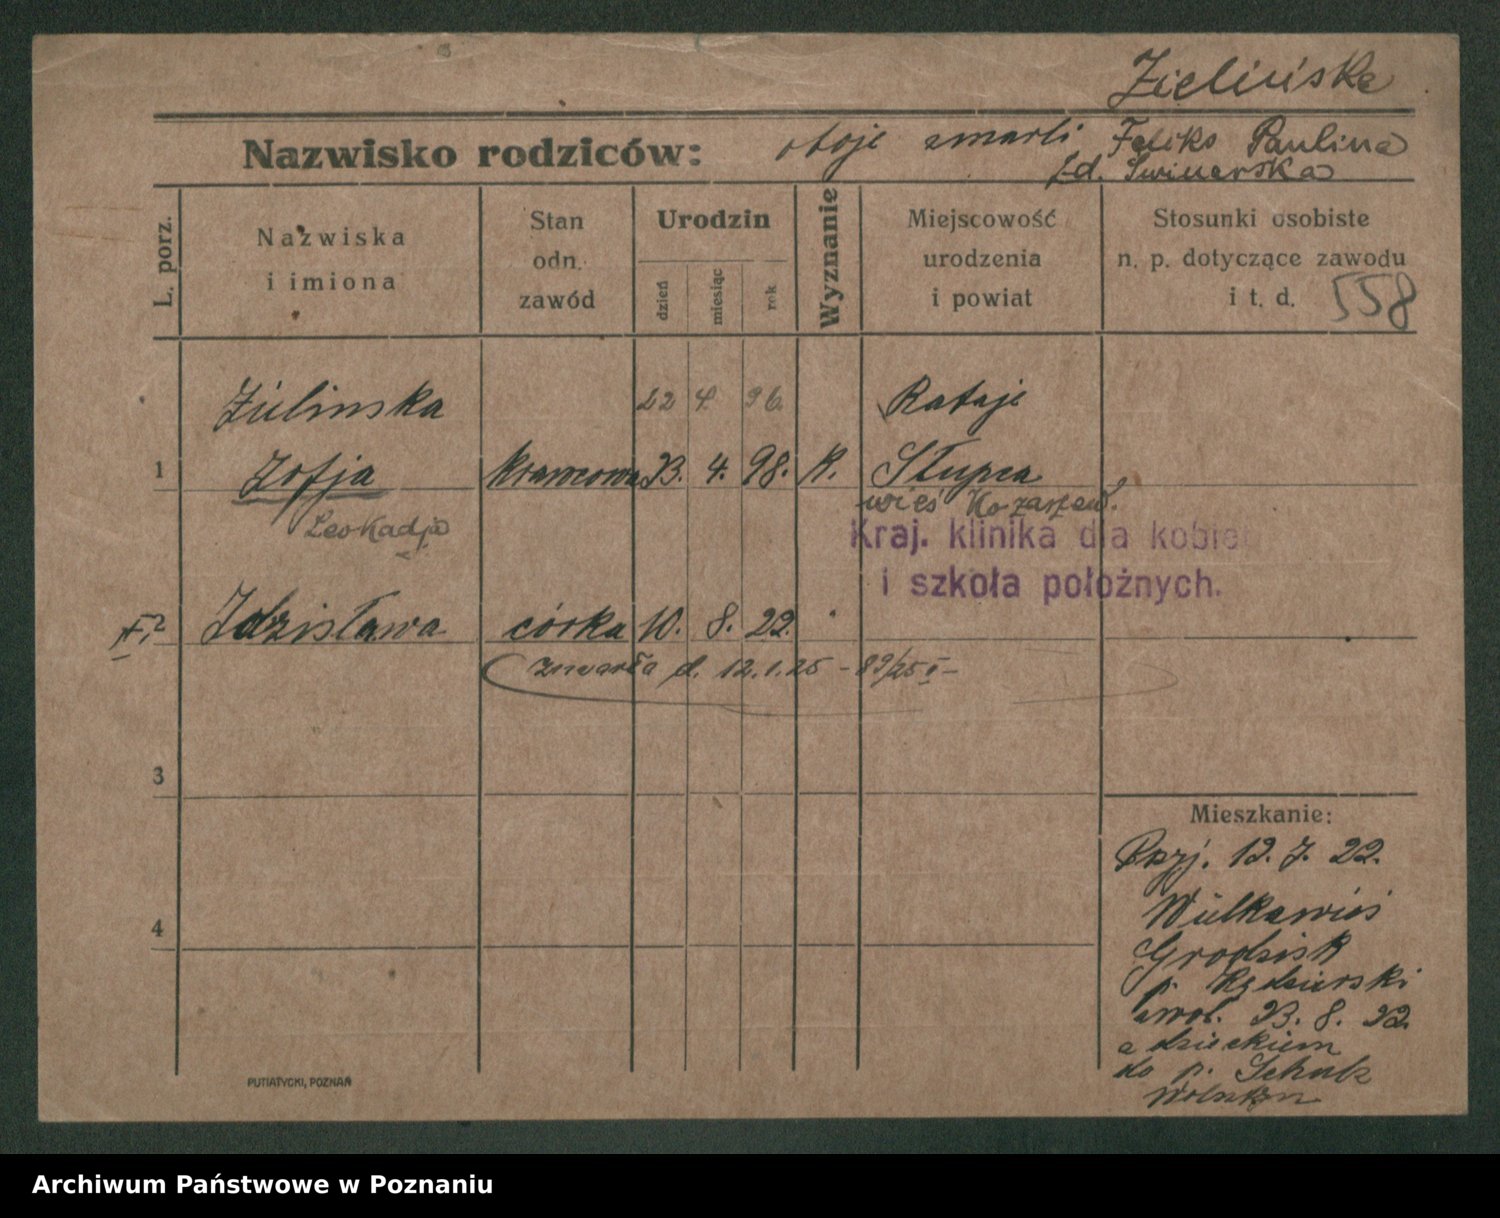 Zielińska
Nazwisko rodziców: oboje zmarli Feliks Paulina
z d. Swinerska
L. porz.
Nazwiska
i imiona
Stan
odn.
zawód
Urodzin
dzień
miesiąc
rok
Wyznanie
Miejscowość
urodzenia
i powiat
Stosunki osobiste
n. p. dotyczące zawodu
i t. d. 558
Zielinska 22 4. 96. Rataje
1 Zofja krawcowa 23. 4. 98. k. Słupca
wieś Kozarzew.
Leokadja
Kraj. klinika dla kobiet
i szkoła położnych.
2 Zdzisława córka 10. 8. 22.
zmarła d. 12.1.25 - 89/25 II -
3
4
Mieszkanie:
Przj. 12. 7. 22.
Wielkawieś
Grodzisk
p. Kędzierski
zwol. 23. 8. 22.
z dzieckiem
do p. Schulz
Wolsztyn
PUTIATYCKI, POZNAŃ
Archiwum Państwowe w Poznaniu